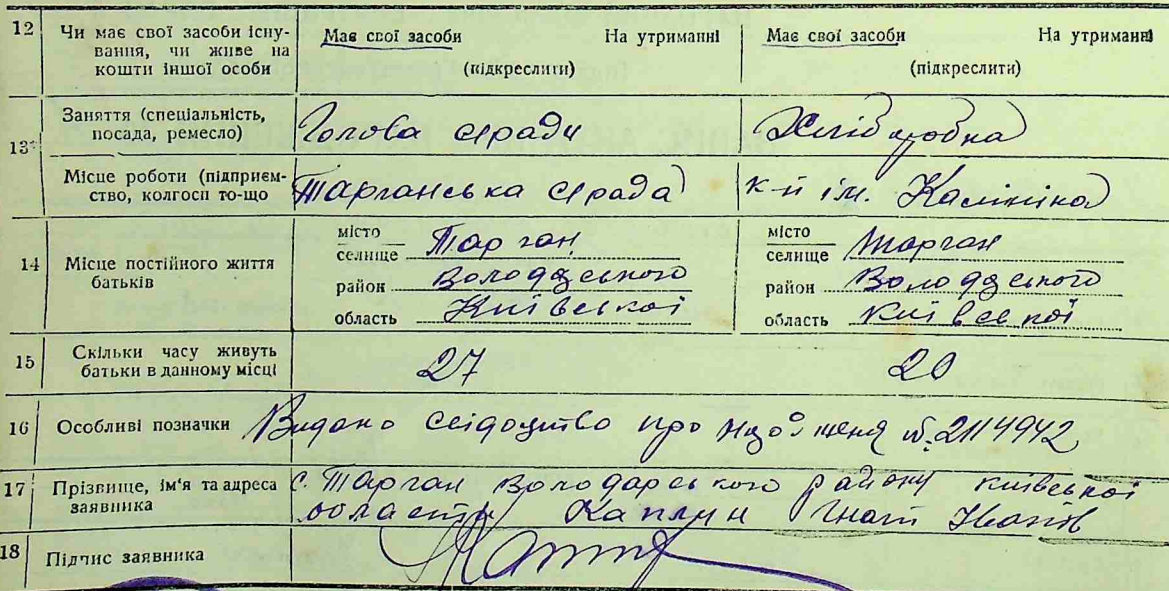 12 Чи має свої засоби існування, чи живе на кошти іншої особи
Має свої засоби На утриманні (підкреслити)
Має свої засоби На утриманні (підкреслити)
13 Заняття (спеціальність, посада, ремесло)
Голова с/ради
Хлібробка
Місце роботи (підприємство, колгосп то-що
Тарганська с/рада
к-п ім. Калініна
14 Місце постійного життя батьків
місто селище Тарган
район Володарського
область Київської
місто селище Тарган
район Володарського
область Київської
15 Скільки часу живуть батьки в данному місці
27
20
16 Особливі позначки Видано свідоцтво про народження № 2114942
17 Прізвище, ім'я та адреса заявника
с. Тарган Володарського району київської
області Каплун Гнат Іванів
18 Підпис заявника